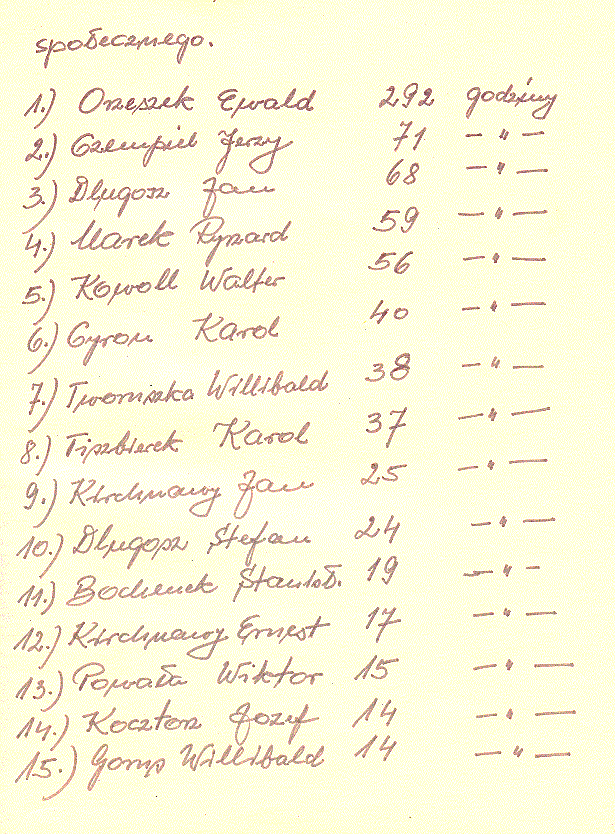 społecznego.
1.) Orzeszek Ewald 292 godziny
2.) Czempiel Jerzy 71 — " —
3.) Długosz Jan 68 — " —
4.) Marek Ryszard 59 — " —
5.) Kowoll Walter 56 — " —
6.) Cyron Karol 40 — " —
7.) Tworuszka Willibald 38 — " —
8.) Tiszbierek Karol 37 — " —
9.) Kirchnawy Jan 25 — " —
10.) Długosz Stefan 24 — " —
11.) Bochenek Stanisł. 19 — " —
12.) Kirchnawy Ernest 17 — " —
13.) Powała Wiktor 15 — " —
14.) Kocztorz Jozef 14 — " —
15.) Willibald 14 — " —